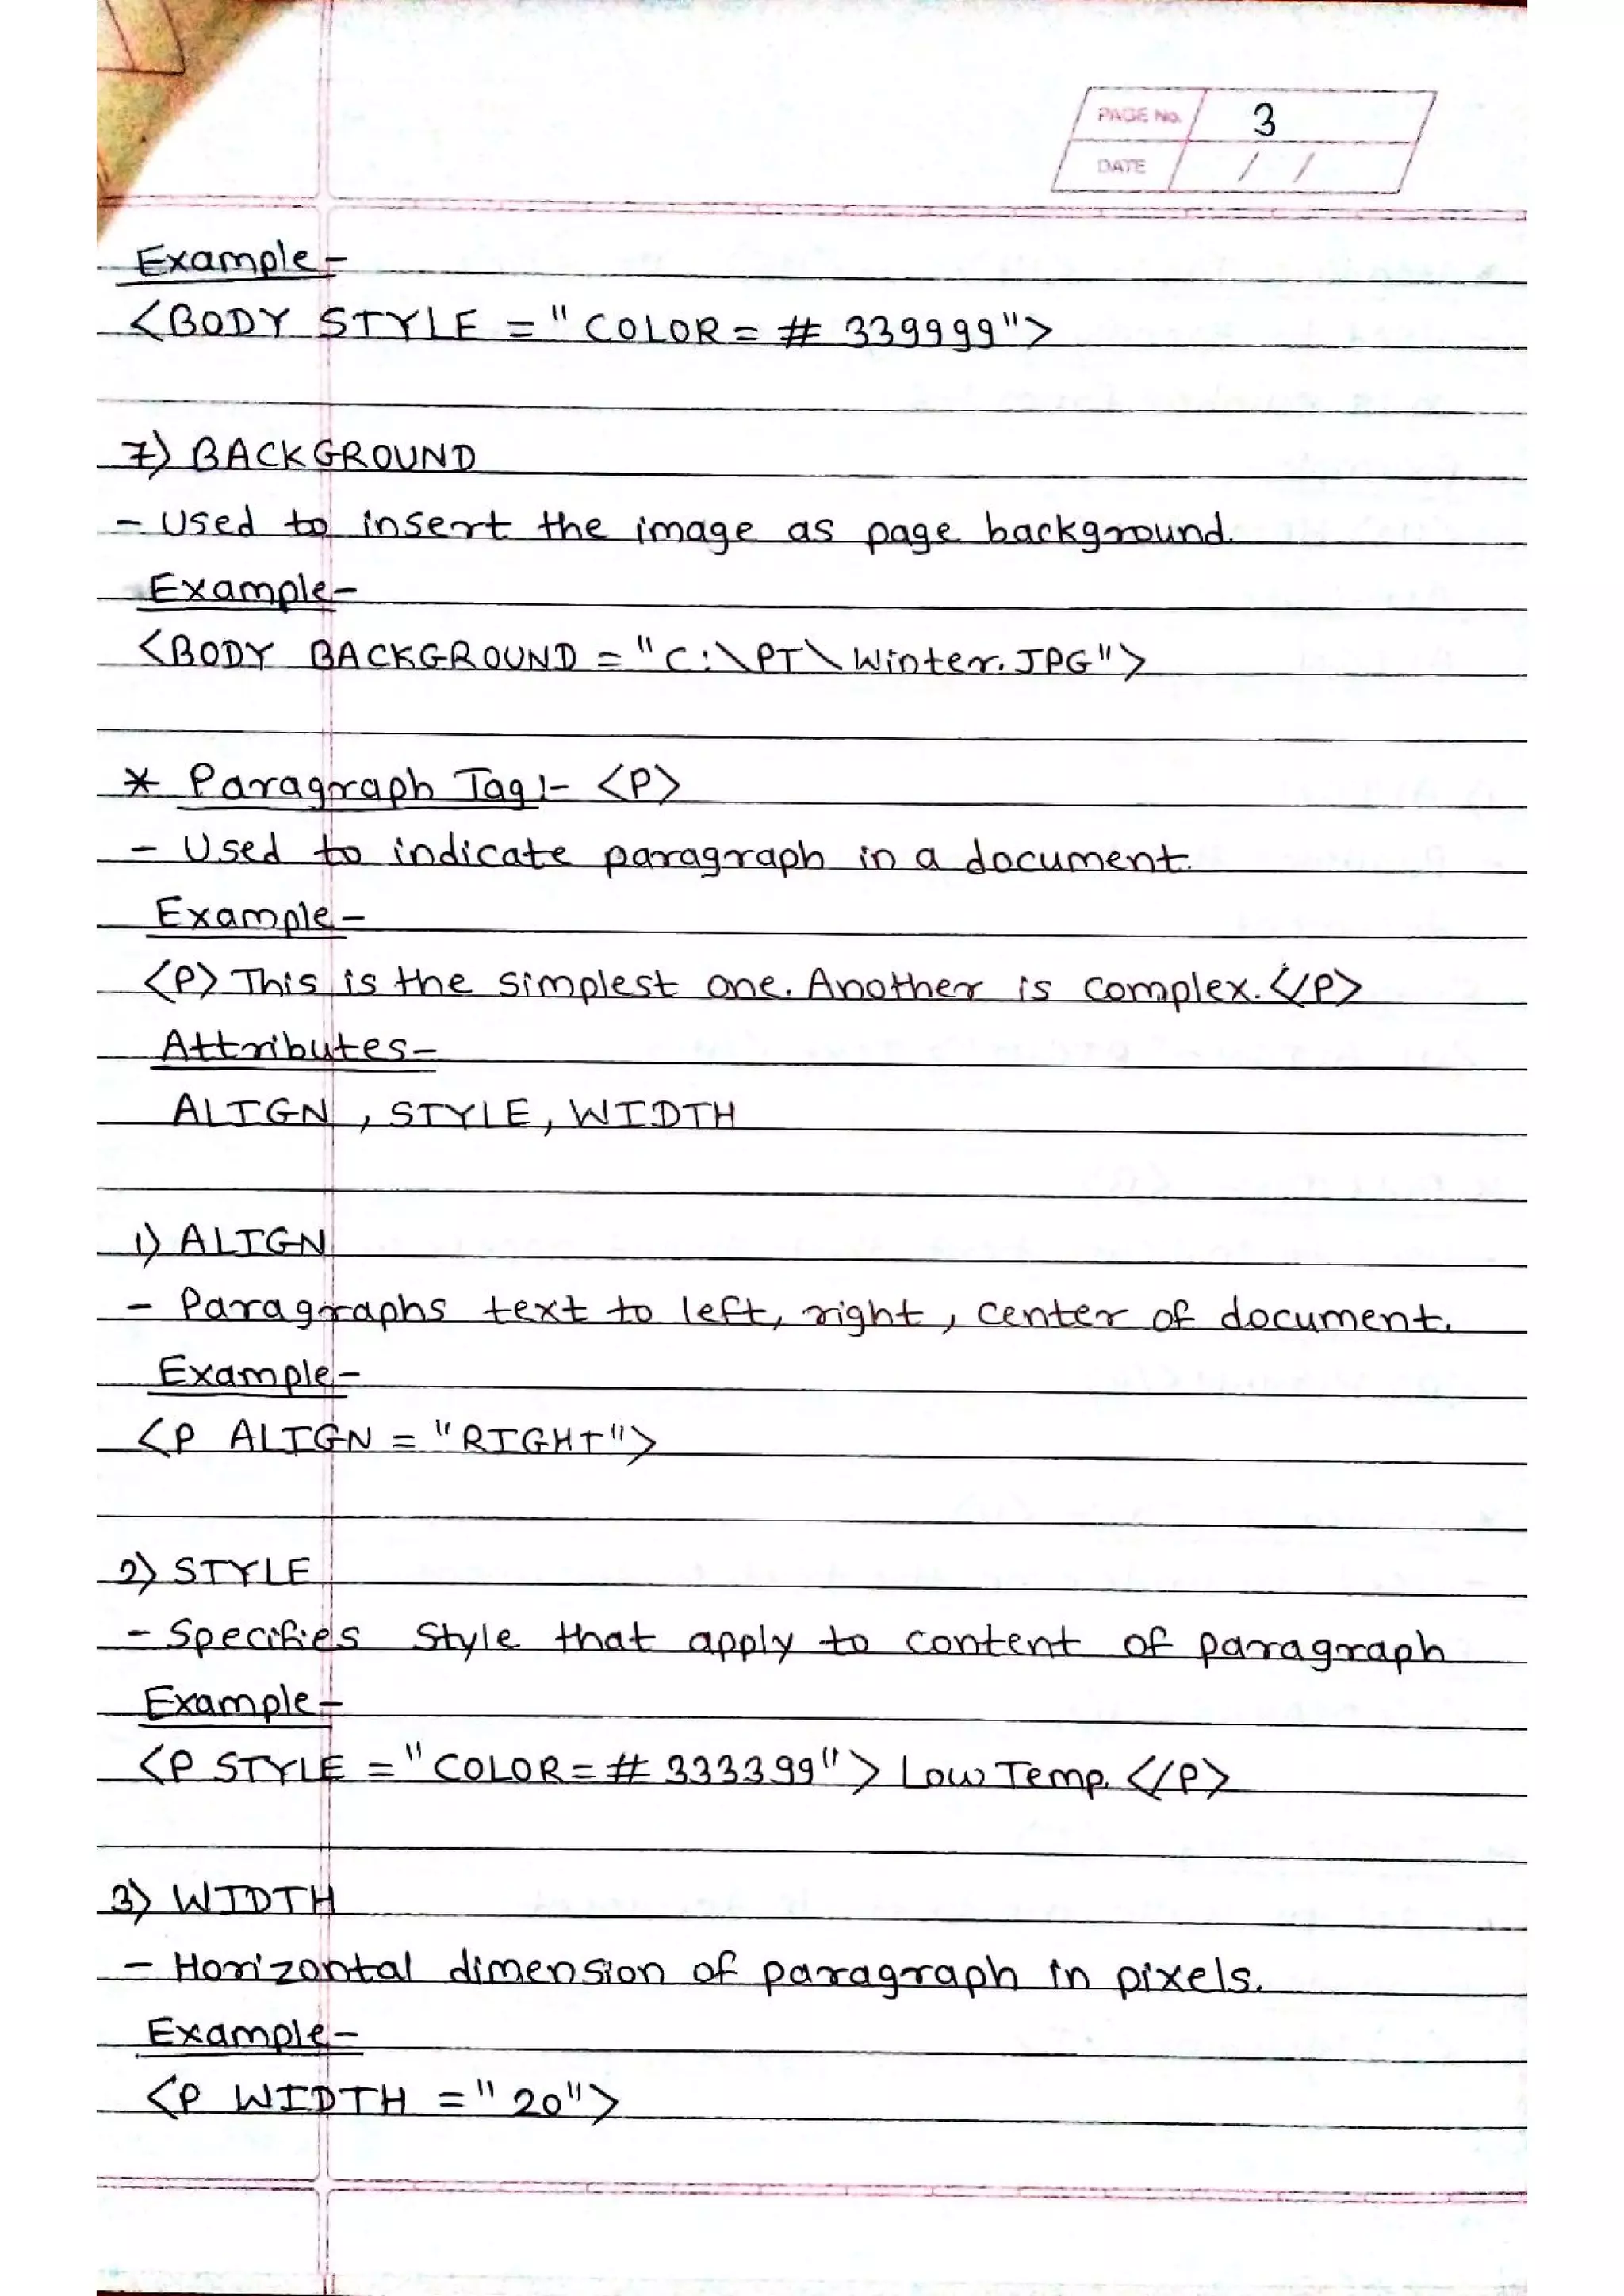 PAGE No. 3
DATE / /
Example-
<BODY STYLE = "COLOR = # 339999">
7) BACKGROUND
- Used to insert the image as page background.
Example-
<BODY BACKGROUND = "C:\PT\Winter.JPG">
* Paragraph Tag :- <P>
- Used to indicate paragraph in a document.
Example-
<P> This is the simplest one. Another is complex. </P>
Attributes-
ALIGN, STYLE, WIDTH
1) ALIGN
- Paragraphs text to left, right, center of document.
Example-
<P ALIGN = "RIGHT">
2) STYLE
- Specifies style that apply to content of paragraph
Example-
<P STYLE = "COLOR = # 333399"> Low Temp. </P>
3) WIDTH
- Horizontal dimension of paragraph in pixels.
Example-
<P WIDTH = "20">